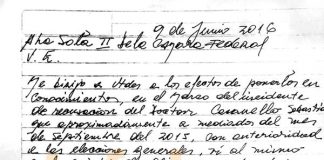 9 de Junio 2016
Sala II de la Cámara Federal
Me dirijo a Ustedes a los efectos de ponerlos en
conocimiento, en el marco del incidente
de recusación del Doctor Casanello Sebastián
que aproximadamente a mediados del mes
de Septiembre del 2015, con anterioridad
a las elecciones generales, vi al mismo